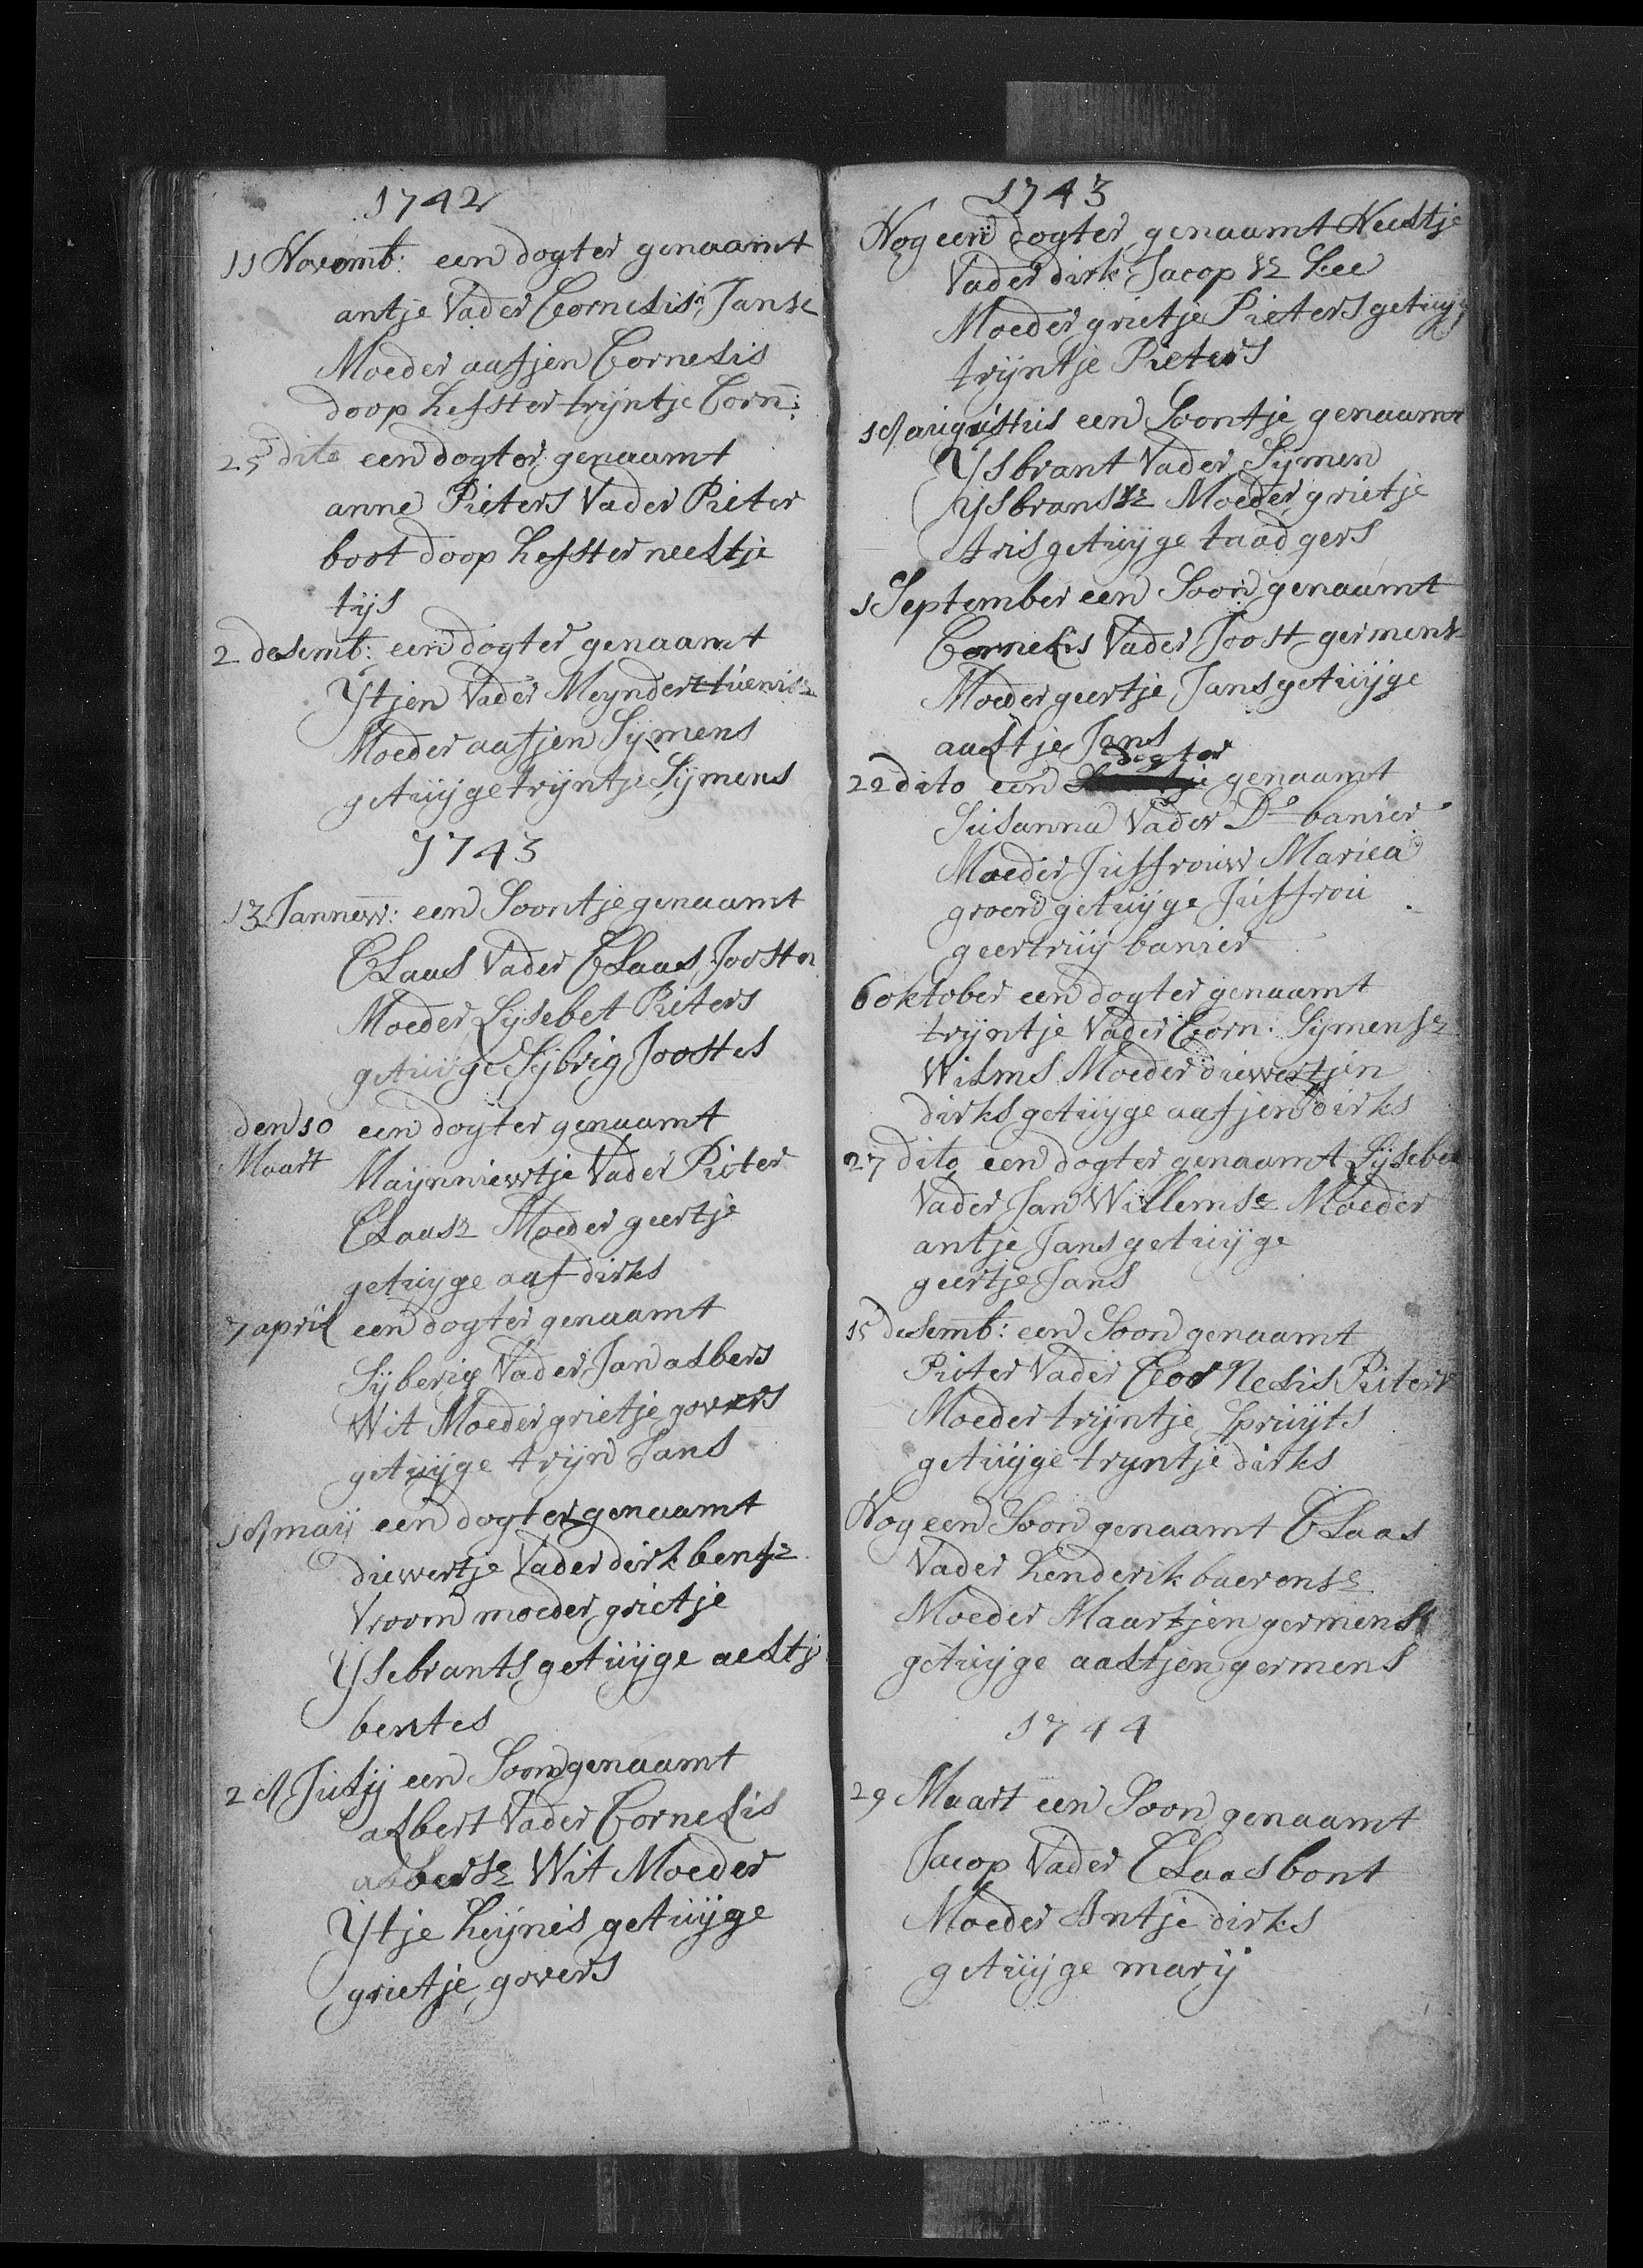 1742
11 Novemb: een dogter genaamt
antje Vader Cornelis Janse
Moeder aafjen Cornelis
doop hefster trijntje Corn:
25 dito een dogter genaamt
anne Pieters Vader Pieter
boot doop hefster neeltje
tijs
2 desemb: een dogter genaamt
Ytjen Vader Meyndert tuenisz
Moeder aafjen Sijmens
getuijge trijntje Sijmens
1743
13 Jannew: een Soontje genaamt
Claas Vader Claas Joosten
Moeder Lijsebet Pieters
getuijge Sijbrig Joostes
den 10 een dogter genaamt
Maart Maijnniewtje Vader Pieter
Claasz Moeder geertje
getuijge aaf dirks
7 april een dogter genaamt
Sijberig Vader Jan albers
Wit Moeder grietje govers
getuijge trijn Jans
18 maij een dogter genaamt
diewertje Vader dirk bentsz
Vroom moeder grietje
Ysebrants getuijge aeltje
bentes
28 Julij een Soon genaamt
albert Vader Cornelis
albersz Wit Moeder
Ytje heijnes getuijge
grietje govers
1743
Nog een dogter genaamt Neeltje
Vader dirk Jacop sz Lee
Moeder grietje Pieters getuijg
trijntje Pieters
18 augustus een Soontje genaamt
Ysbrant Vader Sijmen
Ysbransz Moeder grietje
tris getuijge taadgers
1 September een Soon genaamt
Cornelis Vader Joost germensz
Moeder geertje Jans getuijge
aaltje Jans
22 dito een dogter genaamt
Susanna Vader Ds banier
Moeder Juffrouw Mariea
groen getuijge Juffrou
geertruij banier
6 oktober een dogter genaamt
trijntje Vader Corn: Sijmensz
Wilms Moeder diewertjen
dirks getuijge aafjen dirks
27 dito een dogter genaamt Lijsebet
Vader Jan Willemse Moeder
antje Jans getuijge
geertje Jans
15 desemb: een Soon genaamt
Pieter Vader Cornelis Pieters
Moeder trijntje Spruijts
getuijge trijntje dirks
Nog een Soon genaamt Claas
Vader henderik baerensz
Moeder Maartjen germens
getuijge aaltjen germens
1744
29 Maart een Soon genaamt
Jacop Vader Claas bont
Moeder Antje dirks
getuijge marij